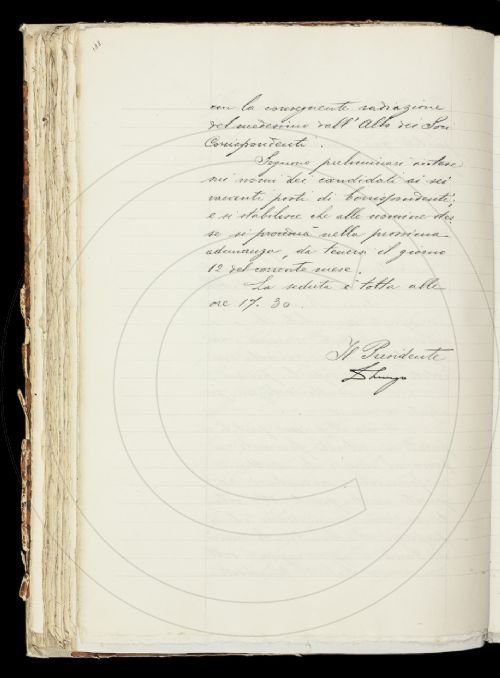 188
con la conseguente radiazione
del medesimo dall'Albo dei Soci
Corrispondenti.
Seguono preliminari intese
sui nomi dei candidati ai sei
vacanti posti di Corrispondenti;
e si stabilisce che alle nomine stes
se si procederà nella prossima
adunanza, da tenersi il giorno
12 del corrente mese.
La seduta è tolta alle
ore 17.30.
Il Presidente